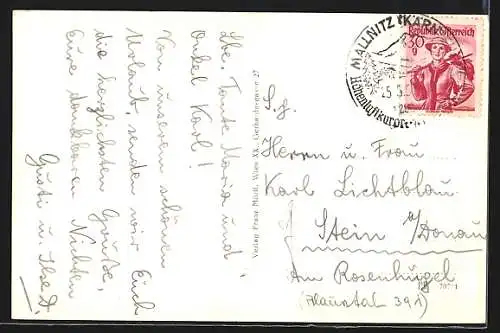 Lbe. Tante Maria und
Onkel Karl!
Von unserem schönen
Urlaub, senden wir Euch
die herzlichsten Grüße,
Eure dankbaren Nichten
Gusti u.
Verlag Franz Mörtl, Wien XX., Gerhardusgasse 27
MALLNITZ (KÄRNT
Höhenluftkurort
Republik Österreich
30
g
S. g.
Herrn u. Frau
Karl Lichtblau
Stein a/Donau
Am Rosenhügel
(Blauental 391)